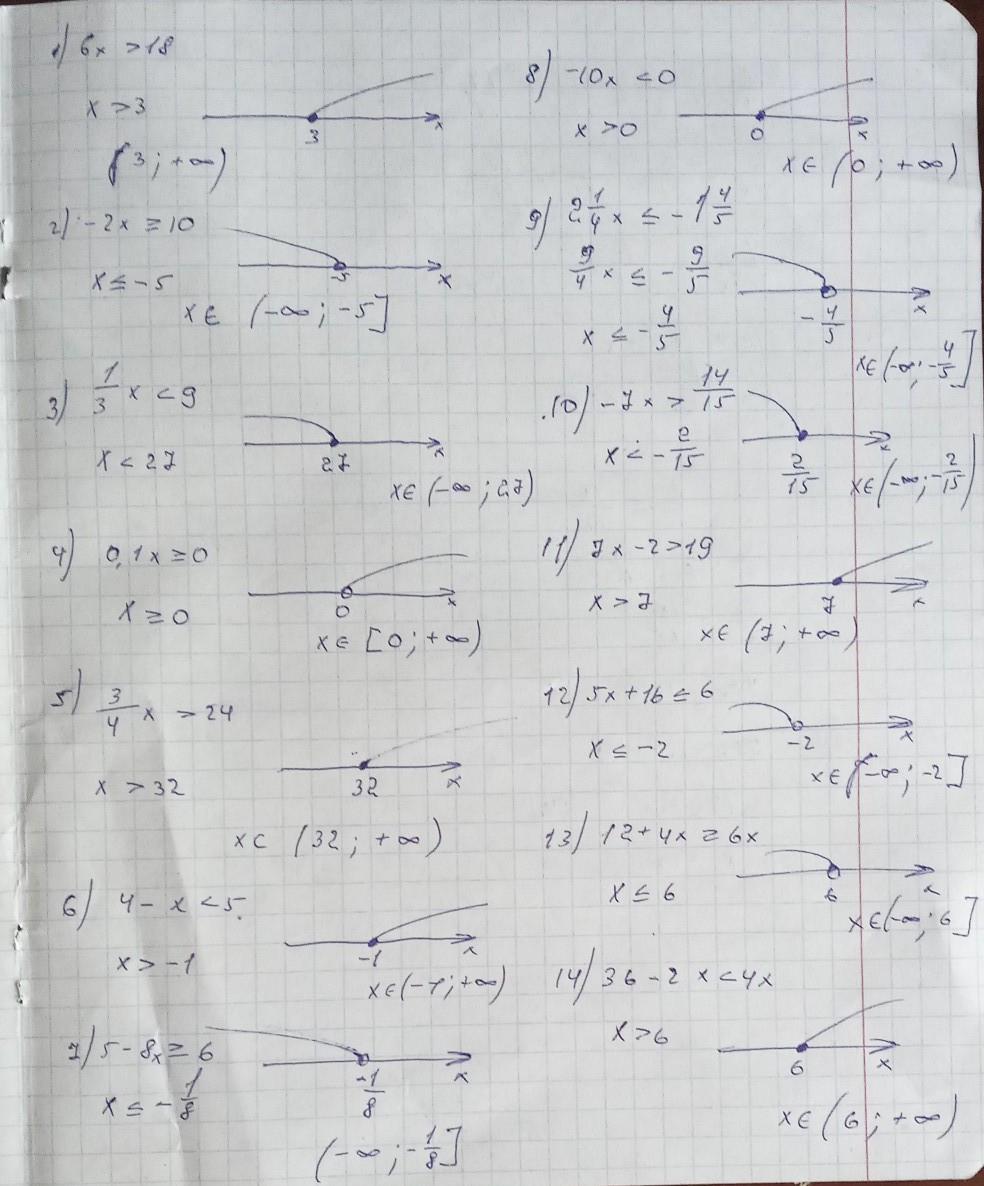 1) 6x > 18
x > 3
3 x
(3; +∞)
2) -2x ≥ 10
x ≤ -5
-5 x
x∈ (-∞; -5]
3) 1/3 x < 9
x < 27
27 x
x∈ (-∞; 27)
4) 0,1x ≥ 0
x ≥ 0
0 x
x∈ [0; +∞)
5) 3/4 x > 24
x > 32
32 x
x∈ (32; +∞)
6) 4 - x < 5
x > -1
-1 x
x∈ (-1; +∞)
7) 5 - 8x ≥ 6
x ≤ -1/8
-1/8 x
(-∞; -1/8]
8) -10x < 0
x > 0
0 x
x∈ (0; +∞)
9) 2 1/4 x ≤ -1 4/5
9/4 x ≤ - 9/5
x ≤ - 4/5
- 4/5 x
x∈ (-∞; -4/5]
10) -7x > 14/15
x < - 2/15
2/15 x
x∈ (-∞; -2/15)
11) 7x - 2 > 19
x > 7
7 x
x∈ (7; +∞)
12) 5x + 16 ≤ 6
x ≤ -2
-2 x
x∈ (-∞; -2]
13) 12 + 4x ≥ 6x
x ≤ 6
6 x
x∈ (-∞; 6]
14) 36 - 2x < 4x
x > 6
6 x
x∈ (6; +∞)